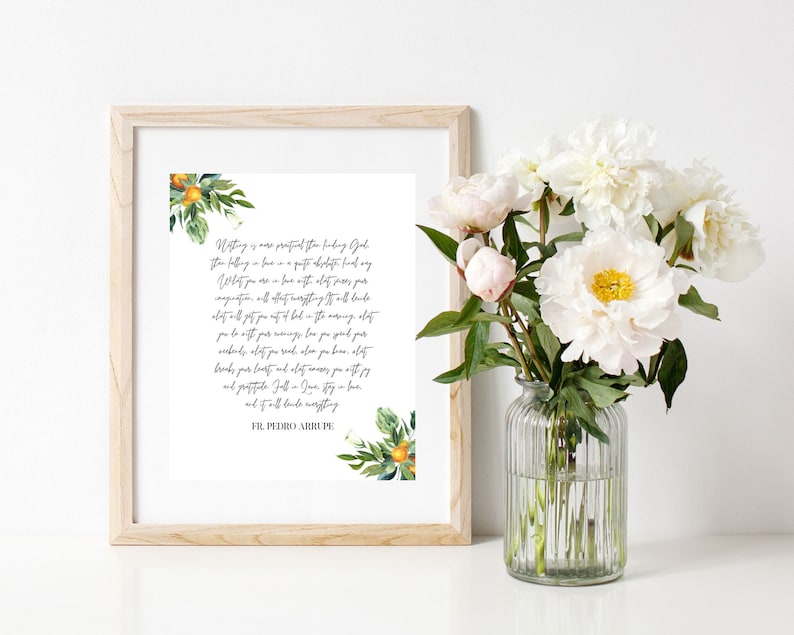 Nothing is more practical than finding God,
than falling in love in a quite absolute, final way.
What you are in love with, what seizes your
imagination, will affect everything. It will decide
what will get you out of bed in the morning, what
you do with your evenings, how you spend your
weekends, what you read, whom you know, what
breaks your heart, and what amazes you with joy
and gratitude. Fall in Love, stay in love,
and it will decide everything.
FR. PEDRO ARRUPE